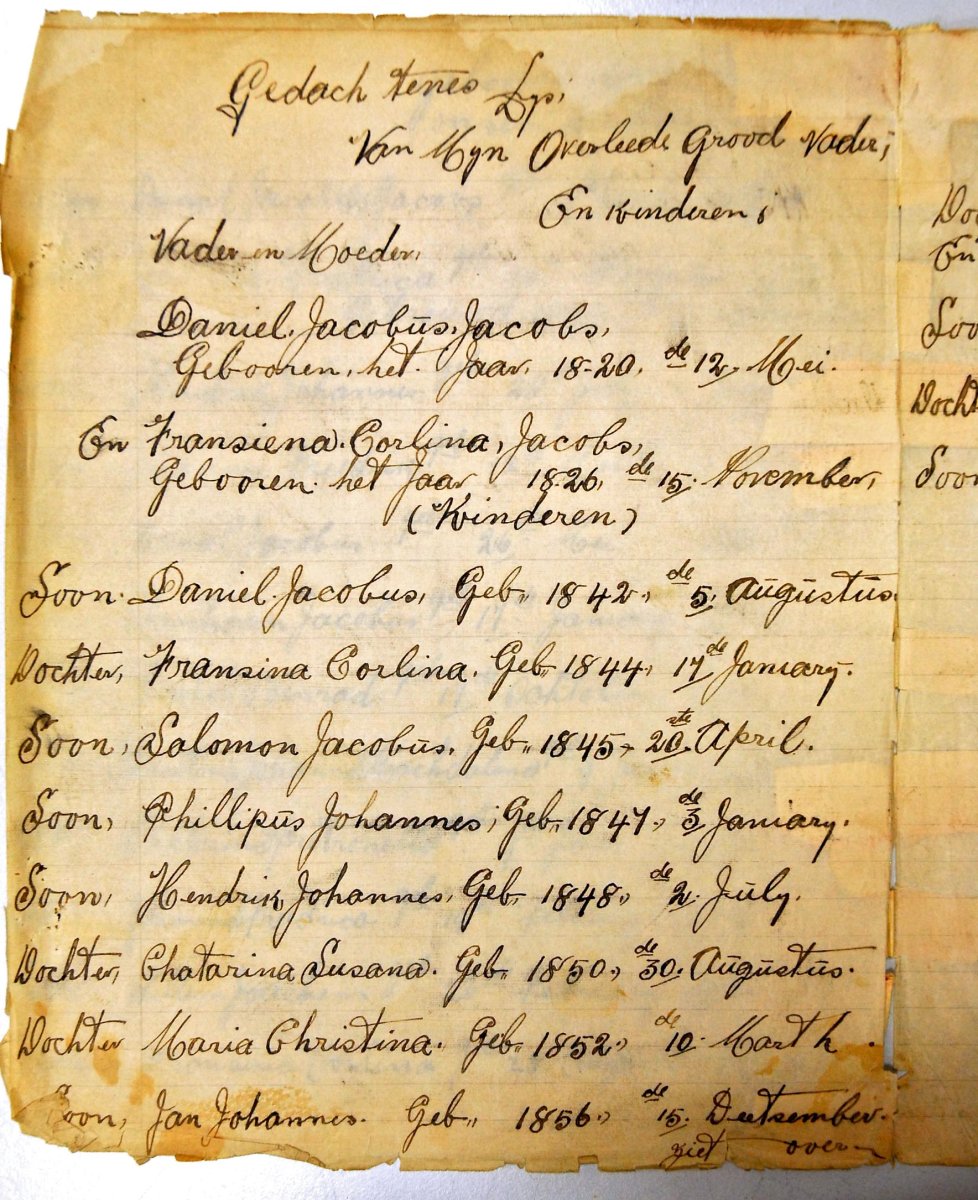 Gedach tenes Lys,
Van Myn Overleede Grood Vader,
En kinderen;
Vader en Moeder,
Daniel. Jacobus. Jacobs,
Gebooren, het. Jaar, 18-20, de 12, Mei.
En Fransiena. Corlina, Jacobs,
Gebooren. het Jaar 1826, de 15. November,
(Kinderen)
Soon. Daniel. Jacobus, Geb,, 1842,, de 5, Augustus.
Dochter, Fransina Corlina. Geb,, 1844,, 17de January.
Soon, Salomon Jacobus. Geb,, 1845,, 20ste April.
Soon, Phillipus Johannes; Geb,, 1847,, de 3 Janiary.
Soon, Hendrik Johannes, Geb,, 1848,, de 2. July.
Dochter, Chatarina Susana. Geb,, 1850,, de 30. Augustus.
Dochter Maria Christina. Geb,, 1852,, de 10. Marth.
Soon, Jan Johannes. Geb,, 1856,, de 15. Deetsember.
ziet over
En
Soon
Docht
Soon